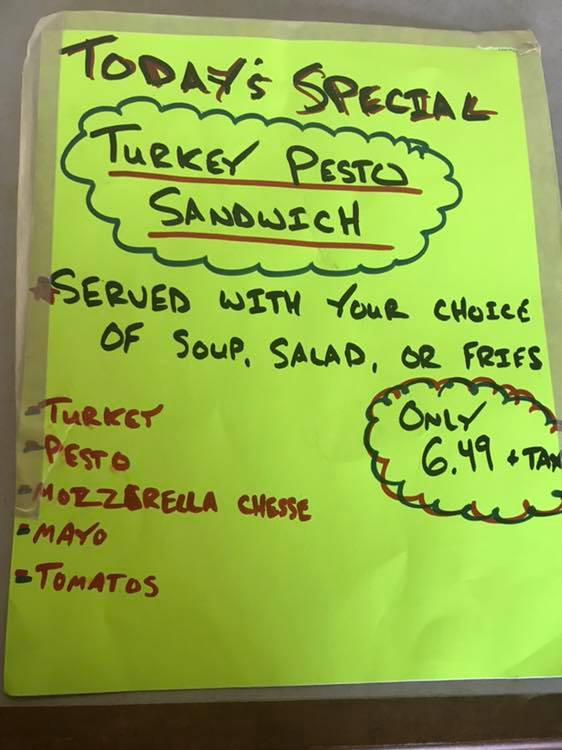 TODAY'S SPECIAL
TURKEY PESTO
SANDWICH
SERVED WITH YOUR CHOICE
OF SOUP, SALAD, OR FRIES
ONLY
6.49 + TAX
-TURKEY
-PESTO
-MOZZERELLA CHESSE
-MAYO
-TOMATOS